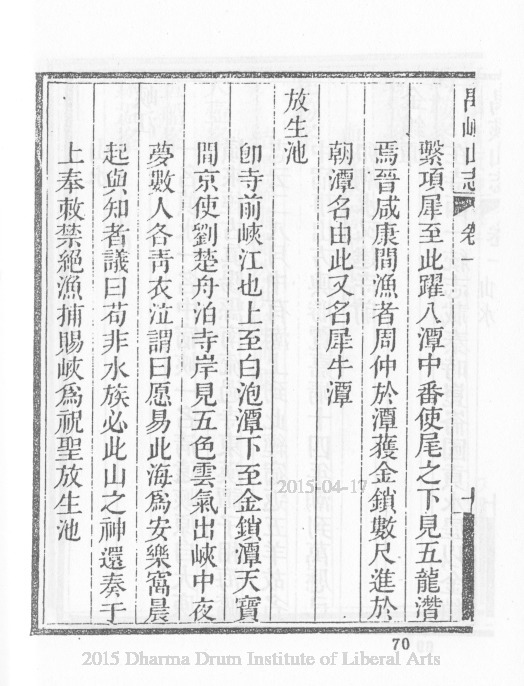 禺峽山志 卷一 十
繫項犀至此躍入潭中番使尾之下見五龍潛
焉晉咸康間漁者周仲於潭獲金鎖數尺進於
朝潭名由此又名犀牛潭
放生池
卽寺前峽江也上至白泡潭下至金鎖潭天寶
間京使劉楚舟泊寺岸見五色雲氣出峽中夜
夢數人各靑衣泣謂曰愿易此海爲安樂窩晨
起與知者議曰苟非水族必此山之神還奏于
上奉敕禁絕漁捕賜峽爲祝聖放生池
2015-04-17
70
2015 Dharma Drum Institute of Liberal Arts